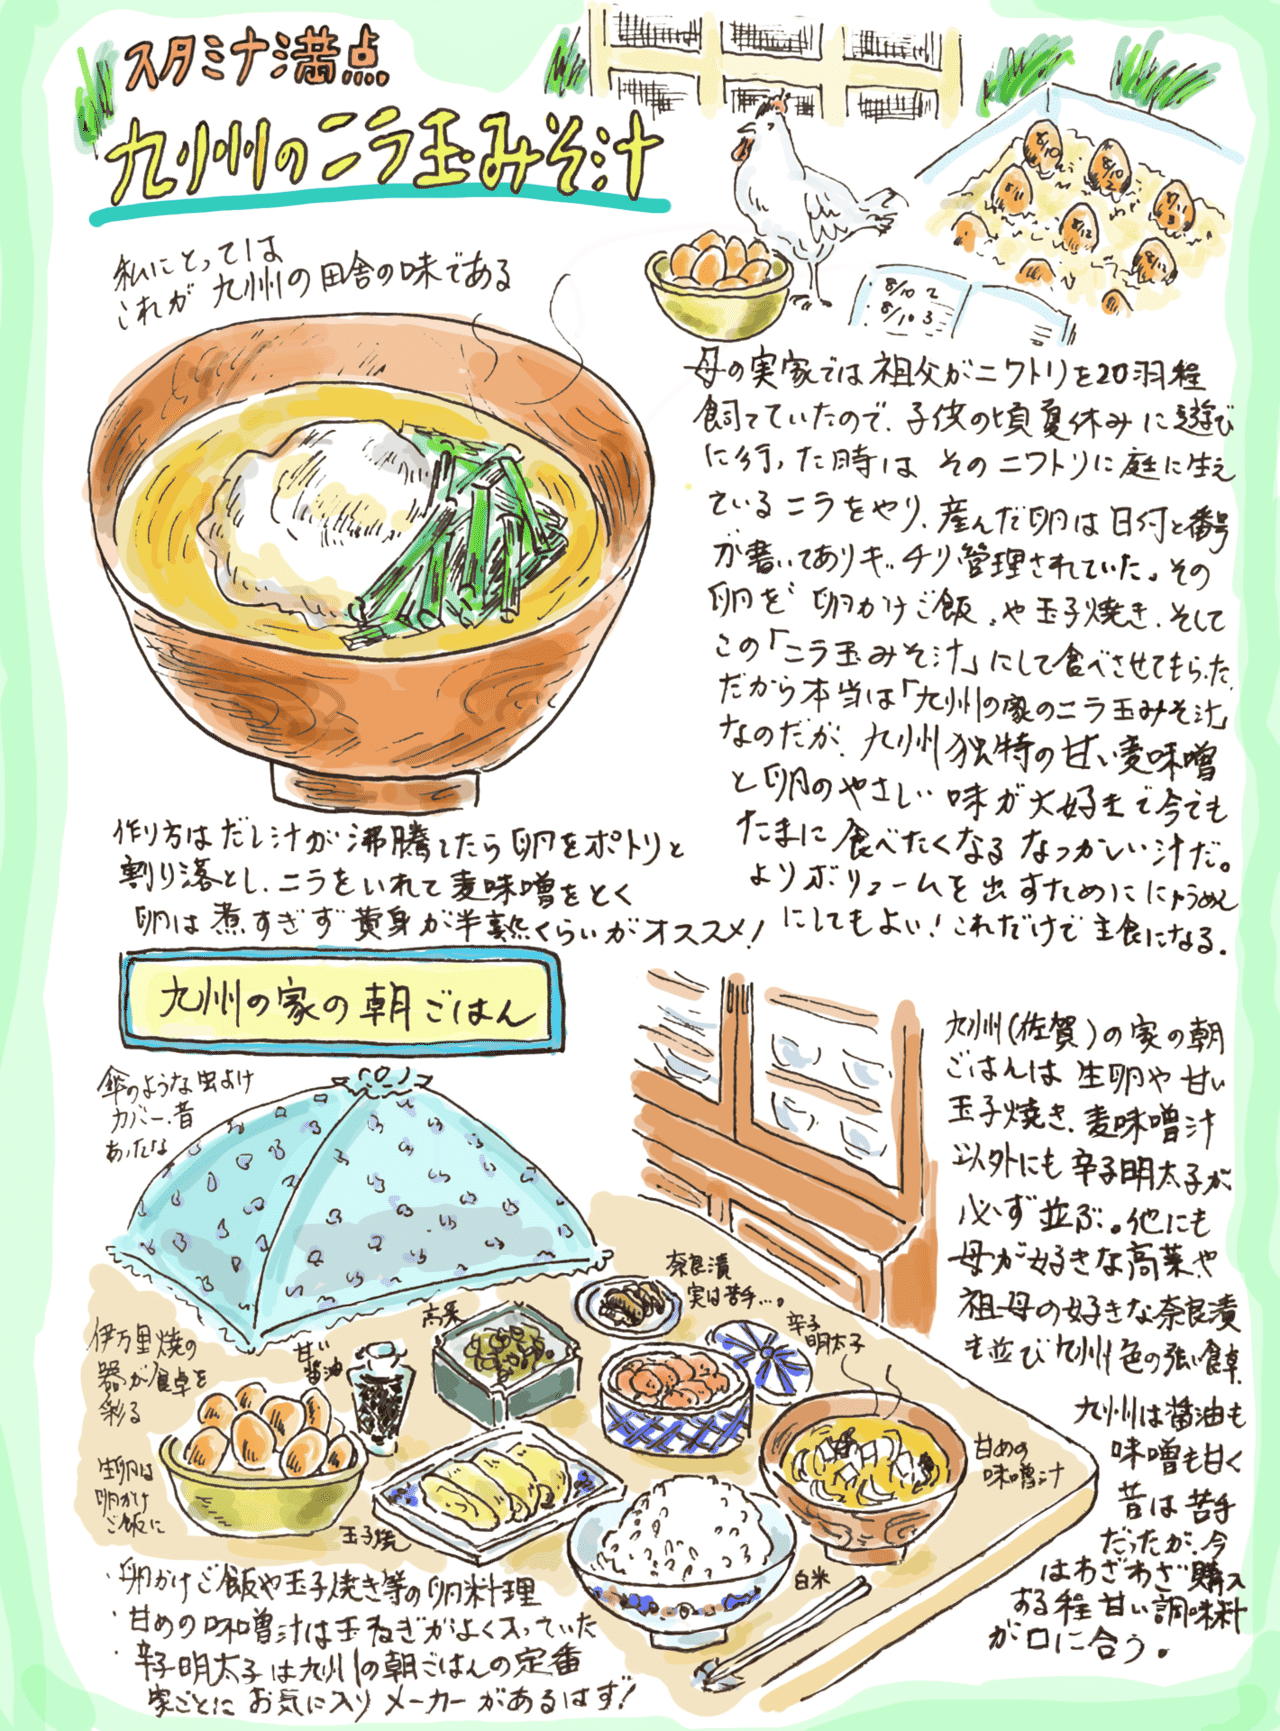 スタミナ満点
九州のニラ玉みそ汁
私にとっては
これが九州の田舎の味である
8/10 2
8/10 3
母の実家では祖父がニワトリを20羽程
飼っていたので、子供の頃夏休みに遊び
に行った時はそのニワトリに庭に生え
ているニラをやり、産んだ卵は日付と番号
が書いてありキッチリ管理されていた。その
卵を"卵かけご飯"や玉子焼き、そして
この「ニラ玉みそ汁」にして食べさせてもらった
だから本当は「九州の家のニラ玉みそ汁」
なのだが、九州独特の甘い麦味噌
と卵のやさしい味が大好きで今でも
たまに食べたくなるなつかしい汁だ。
よりボリュームを出すためににゅうめん
にしてもよい!これだけで主食になる.
作り方はだし汁が沸騰したら卵をポトリと
割り落とし、ニラをいれて麦味噌をとく
卵は煮すぎず黄身が半熟くらいがオススメ!
九州の家の朝ごはん
傘のような虫よけ
カバー、昔
あったな
九州(佐賀)の家の朝
ごはんは生卵や甘い
玉子焼き、麦味噌汁
以外にも辛子明太子が
必ず並ぶ。他にも
母が好きな高菜や
祖母の好きな奈良漬
も並び九州色の強い食卓.
九州は醤油も
味噌も甘く
昔は苦手
だったが、今
はわざわざ購入
する程甘い調味料
が口に合う。
奈良漬
実は苦手…。
高菜
辛子
明太子
甘い
醤油
伊万里焼の
器が食卓を
彩る
生卵は
卵かけ
ご飯に
玉子焼
甘めの
味噌汁
白米
・卵かけご飯や玉子焼き等の卵料理
・甘めの味噌汁は玉ねぎがよく入っていた
・辛子明太子は九州の朝ごはんの定番
家ごとにお気に入りメーカーがあるはず!